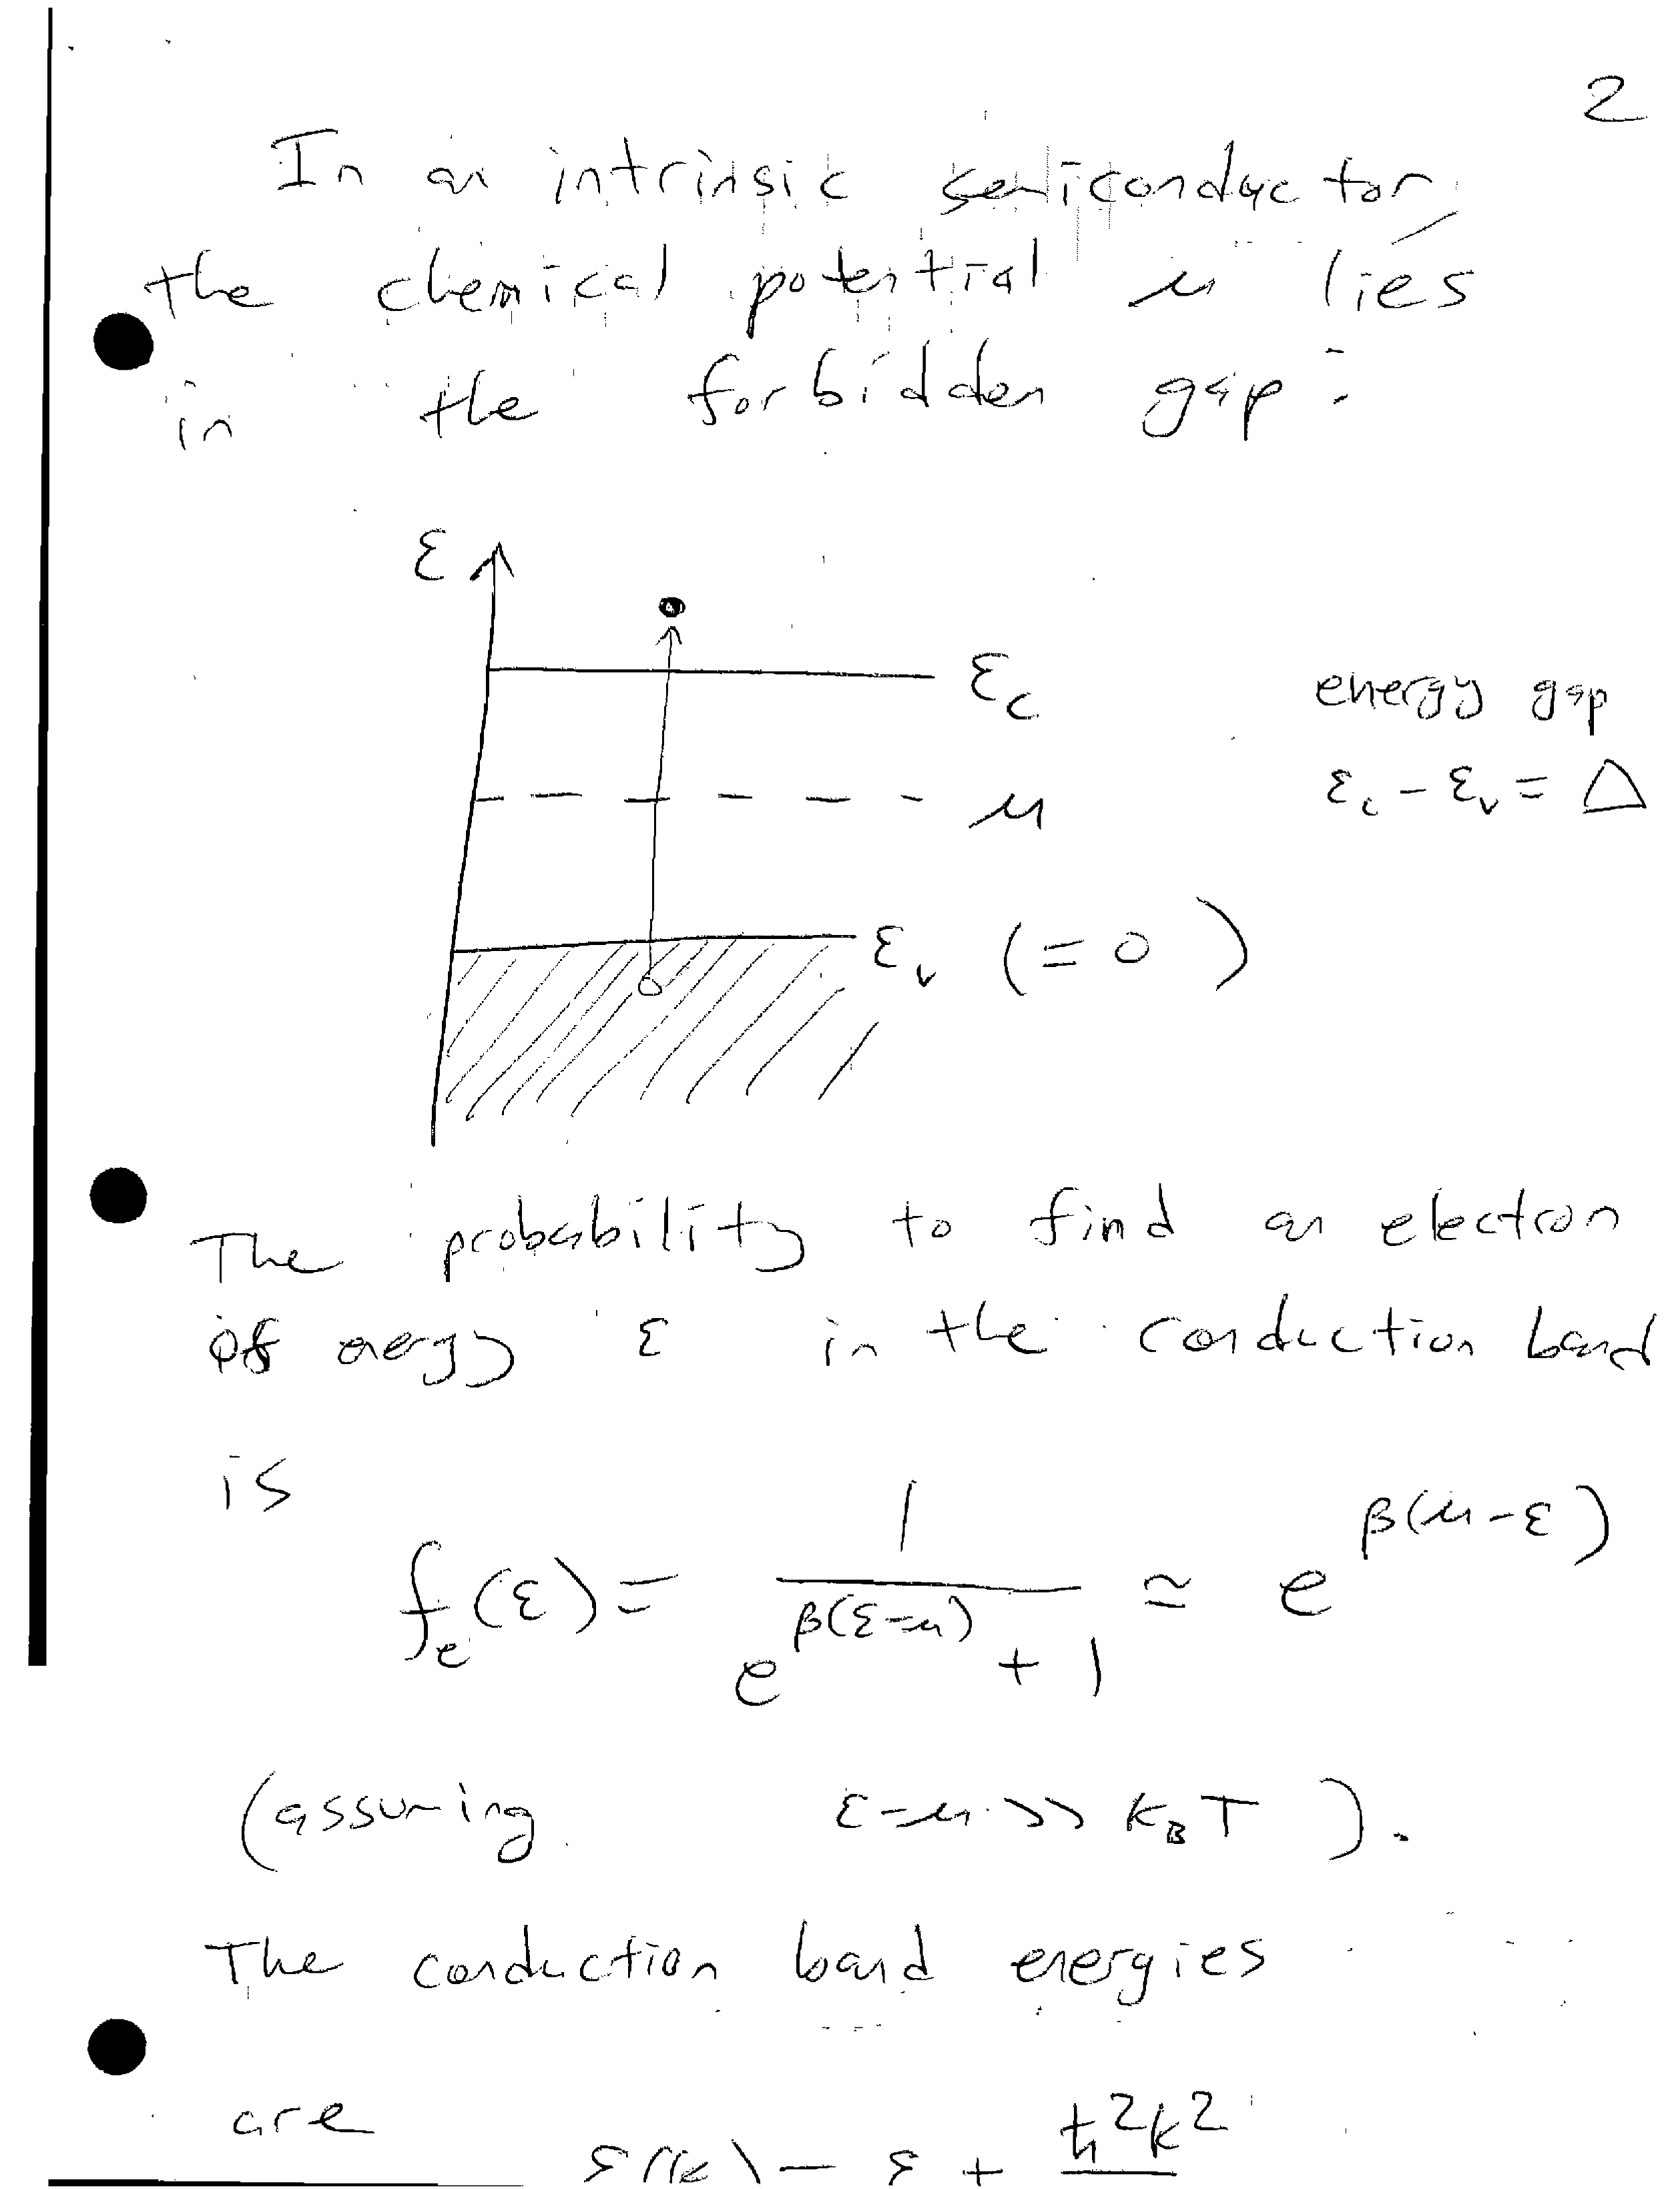 2
In an intrinsic semiconductor,
the chemical potential μ lies
in the forbidden gap:
ε
ε_c
energy gap
μ
ε_c - ε_v = Δ
ε_v (= 0)
The probability to find an electron
of energy ε in the conduction band
is
f_e(ε) = 1/(e^{β(ε-μ)} + 1) ≃ e^{β(μ-ε)}
(assuming ε-μ >> k_B T).
The conduction band energies
are
ħ²k²